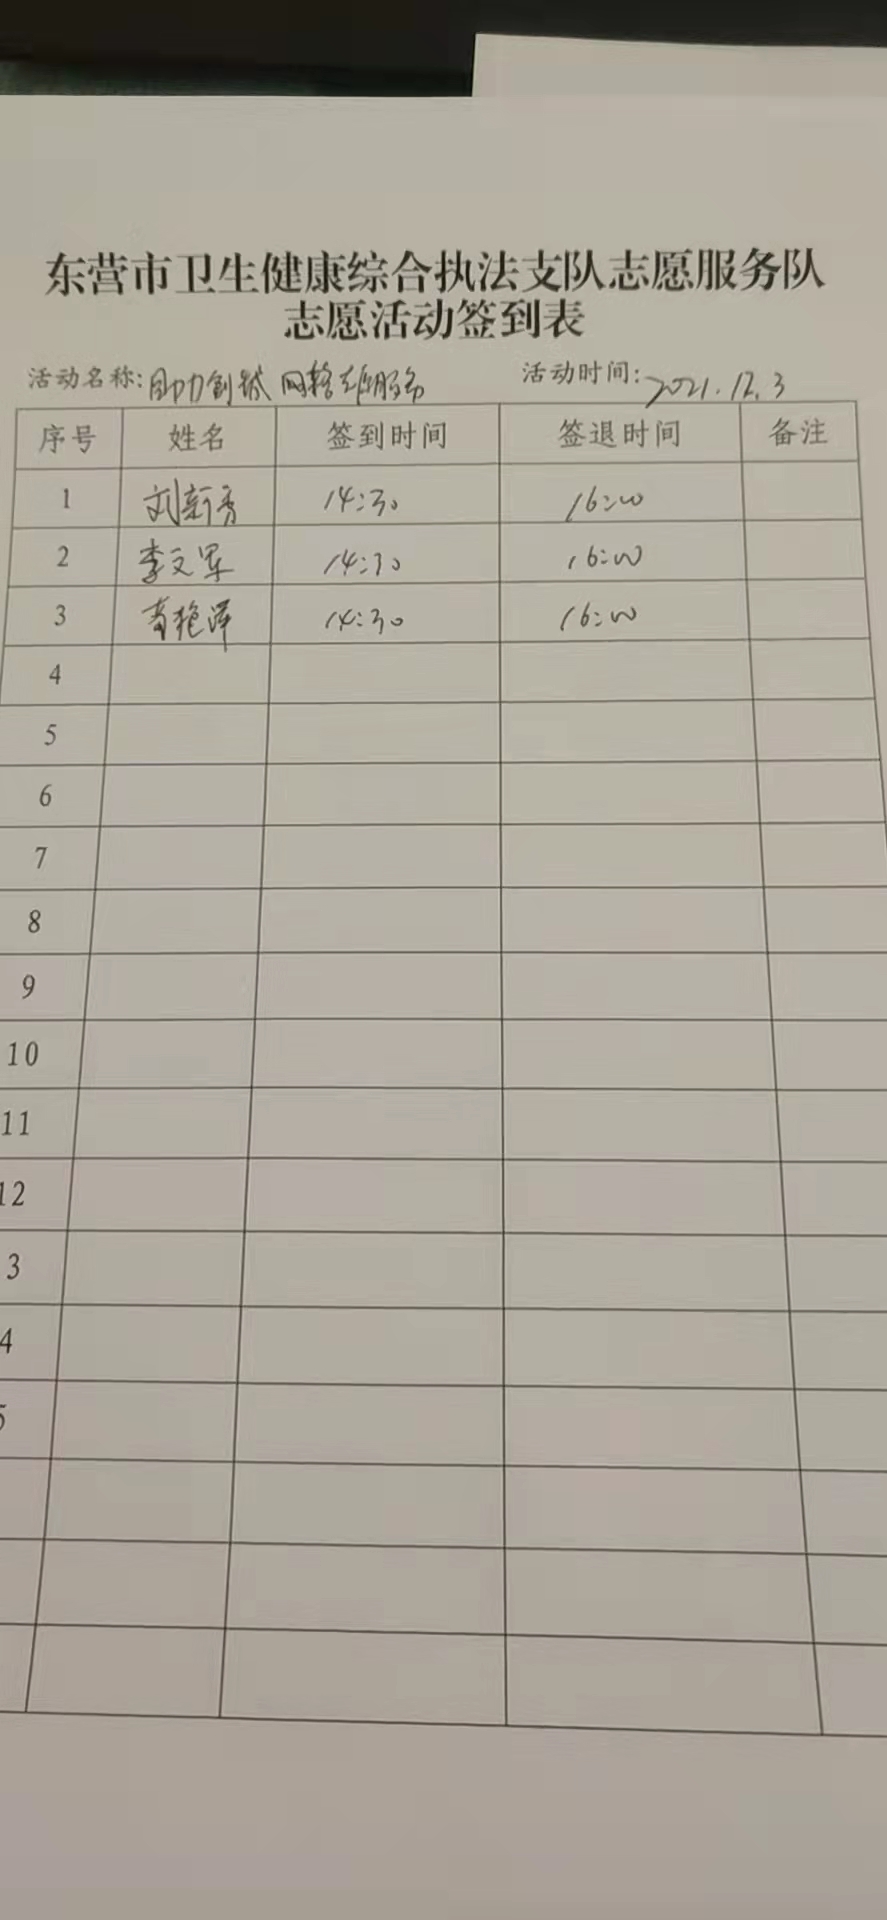 东营市卫生健康综合执法支队志愿服务队
志愿活动签到表
活动名称:助力创城 网格 服务 活动时间:2021.12.3
序号 姓名 签到时间 签退时间 备注
1 刘新秀 14:30 16:00
2 李文军 14:30 16:00
3 14:30 16:00
4
5
6
7
8
9
10
11
12
3
4
5